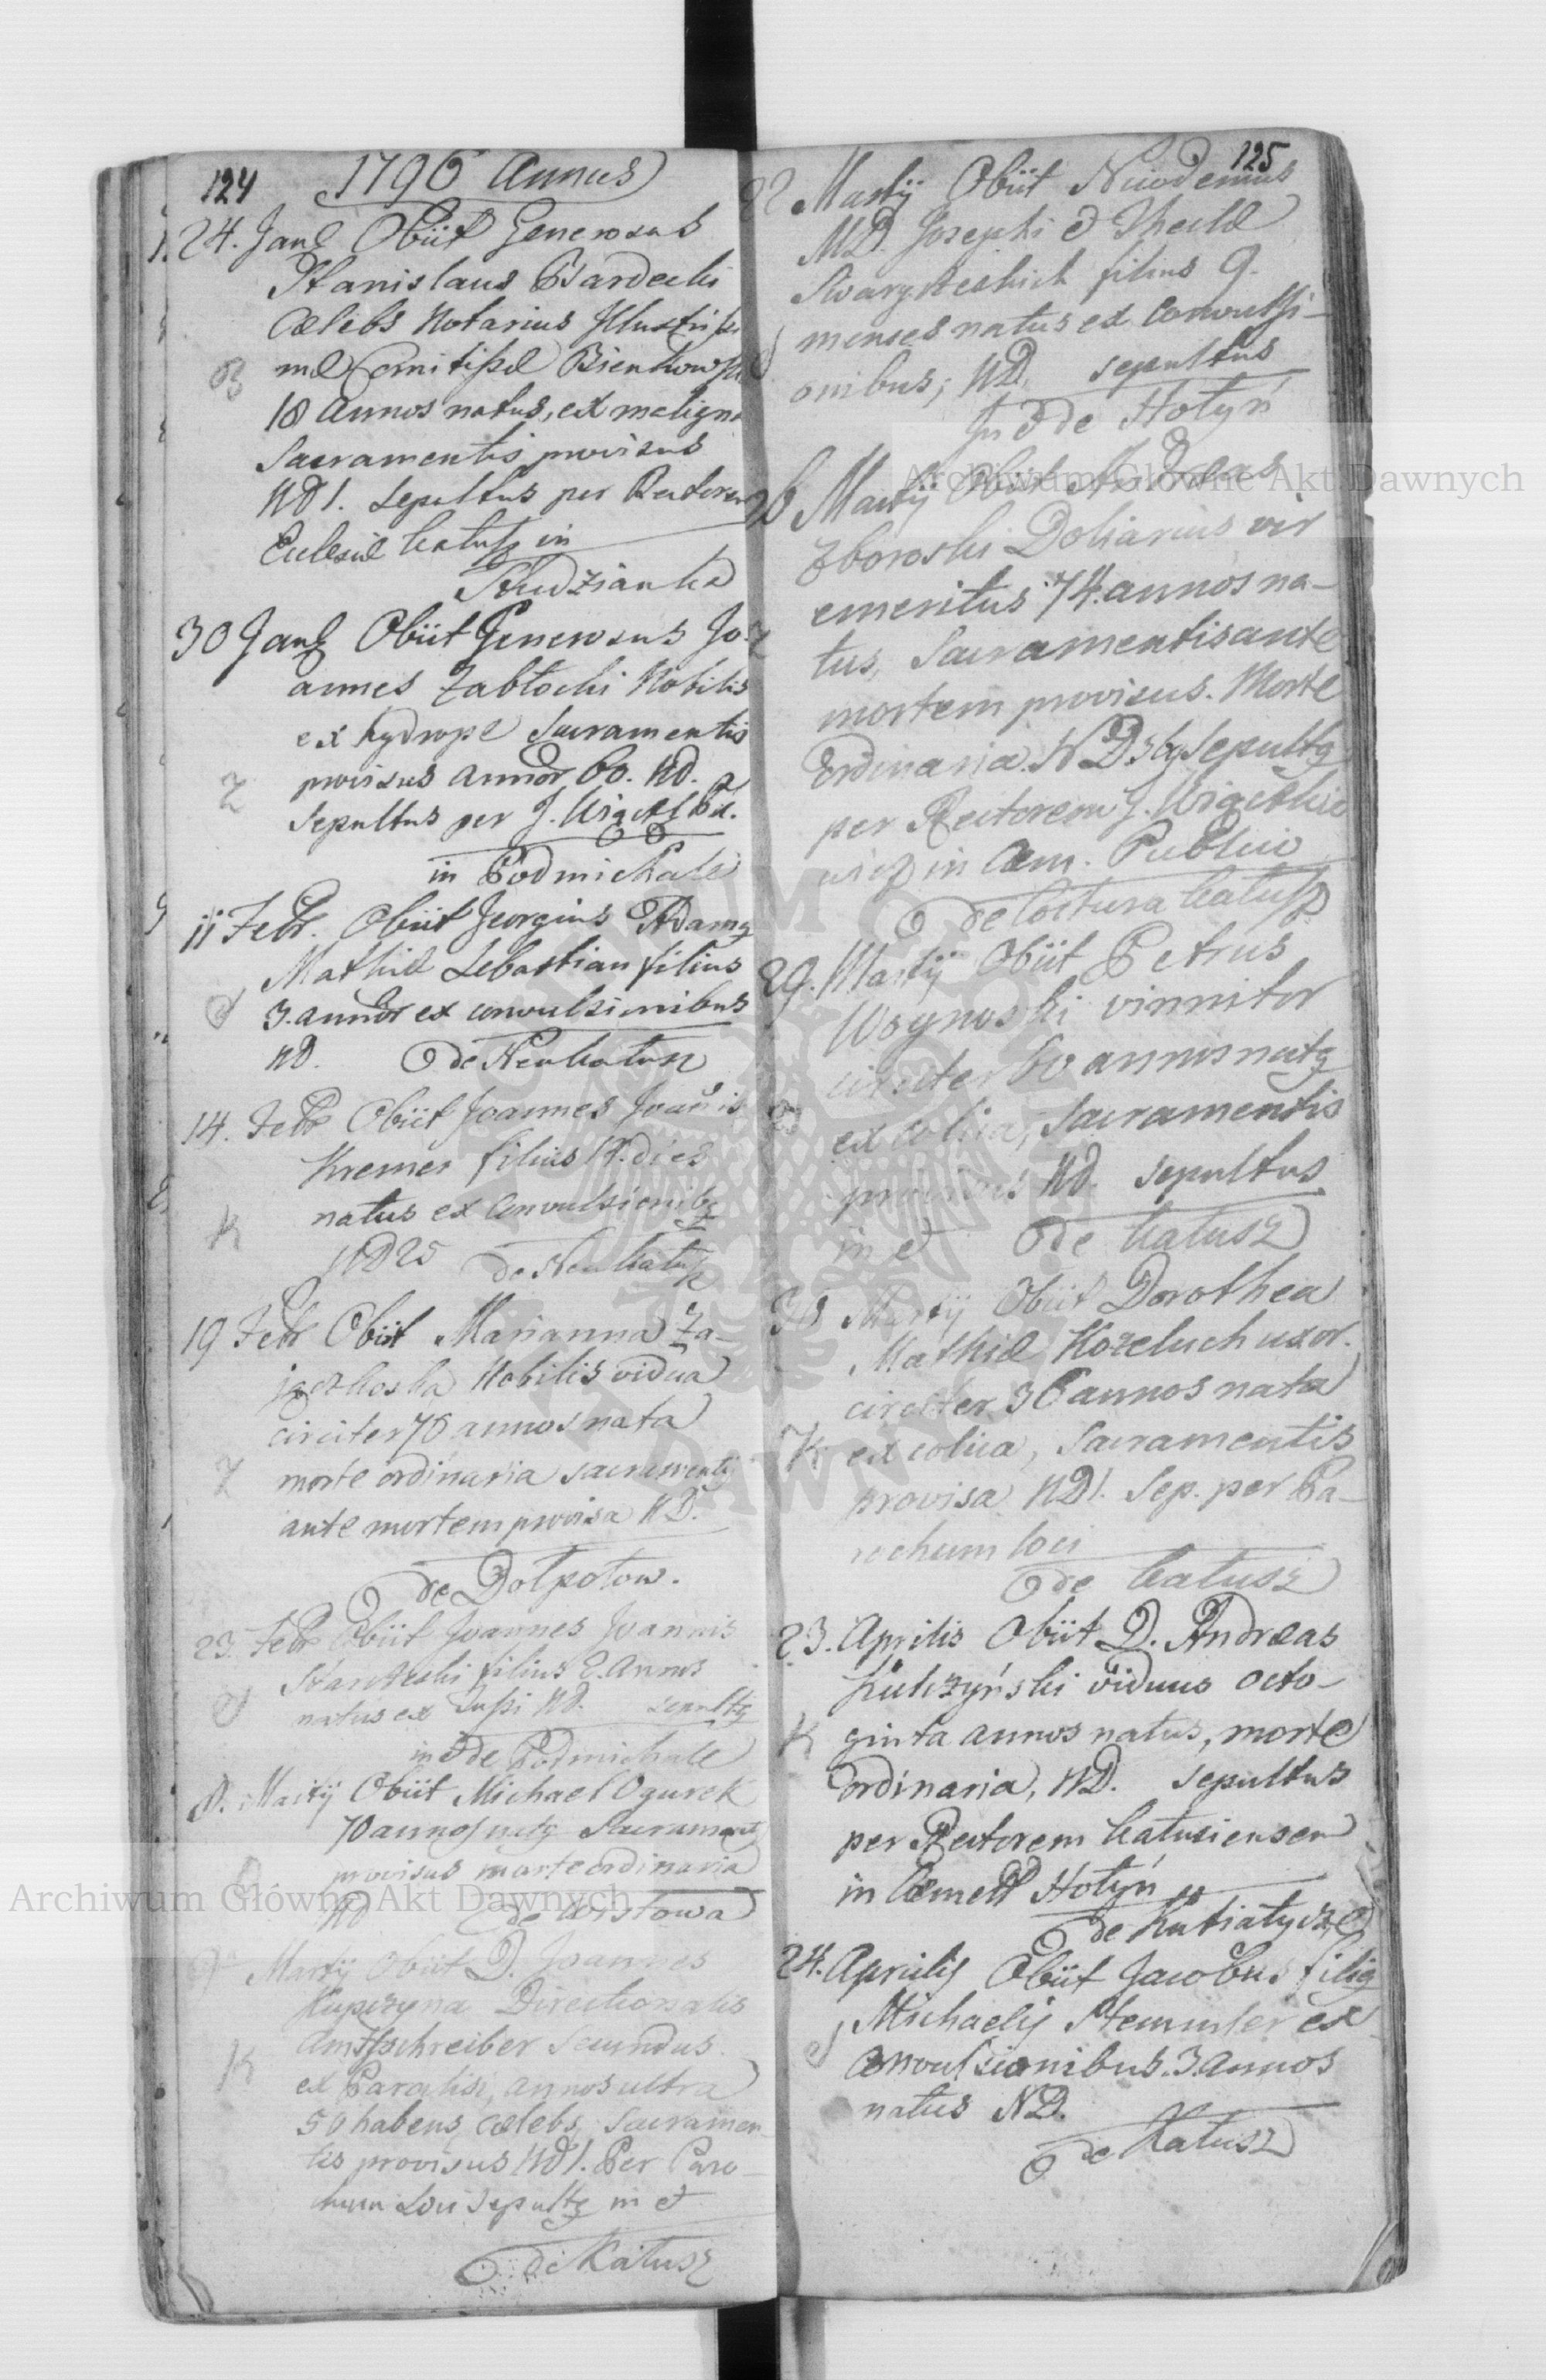 124 1796 Annus
24. Janȩ Obiit Generosus
Stanislaus Bardecki
Cælebs Notarius Illustrissi
mæ Comitissæ Bienkowska
B
18 annos natus, ex maligna
Sacramentis provisus
ND 1. Sepultus per Rectorem
Eclesiæ Kałusz in
Studzianka
30 Janȩ Obiit Generosus Jo-
annes Zabłocki Nobilis
ex hydrope Sacramentis
Z
provisus annor 60. Nd.
Sepultus per J.
in Podmichale
11 Febr. Obiit Georgius Adamq
Mathiæ Sebastian filius
3. annor ex convulsionibus
ND. de Neukałusz
14. Febr Obiit Joannes Joannis
Kremer filius 14. dies
natus ex convulsionibq
K
ND 25 de Neukałusz
19 Febr Obiit Marianna Za-
jączkoska Nobilis vidua
circiter 76 annos nata
Z
morte ordinaria sacramentis
ante mortem provisa ND.
de Dołpotow.
23. Febr Obiit Joannes Joannis
filius 2. Annos
natus ex Tussi Nd. sepultq
in & de Podmichale
Martij Obiit Michael Ogurek
70 annos natq Sacrament
provisus morte ordinaria
ND de Wistowa
Martij Obiit D. Joannes
Kupczyna Directionalis
Amtsschreiber Secundus.
K
ex Paralisi, annos ultra
50 habens, cælebs, Sacramen-
tis provisus ND 1. Per Paro-
chum Loci Sepultq in &
de Kałusz
125
22 Martij Obiit Nicodemus
MD. Josephi & Theclæ
Skwarysteskich filius 9.
menses natus ex convulsi-
onibus; ND. sepultus
In & de Hołyń
26 Martij Obiit Andreas
Zboroski Doliarius vir
Z
emeritus 74. annos na-
tus, Sacramentis ante
mortem provisus. Morte
ordinaria. ND 36 Sepultq
per Rectorem J.
in Cæm. Publico
de Kałusz
29. Martij Obiit Petrus
Woynoski vinnitor
circiter 60 annos natq
ex colica, Sacramentis
provisus ND. sepultus
in & de Kałusz
30 Martij Obiit Dorothea
Mathiæ Kozeluch uxor.
circiter 36 annos nata
K
ex colica, Sacramentis
provisa ND 1. Sep. per Pa-
rochum loci
de Kałusz
23. Aprilis Obiit D. Andreas
Kulczyński viduus octo-
K
ginta annos natus, morte
ordinaria, ND. sepultus
per Rectorem Kałusiensem
in Cæmet Hołyń
de Kutiatycze
24. Aprilis Obiit Jacobus filiq
Michaelis Stemmler ex
convulsionibus. 3. annos
natus ND.
de Kałusz
Archiwum Główne Akt Dawnych
Archiwum Główne Akt Dawnych